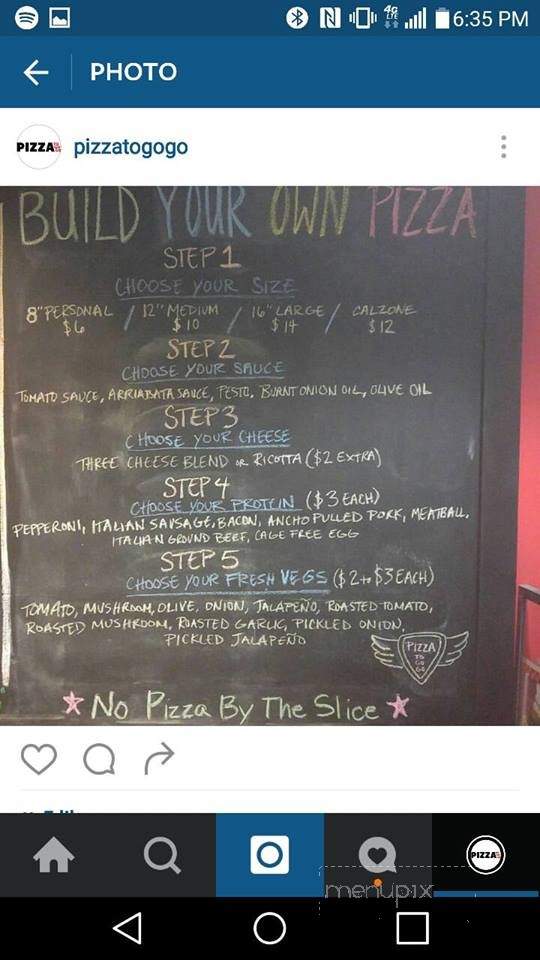 4G
LTE
6:35 PM
PHOTO
PIZZA
pizzatogogo
BUILD YOUR OWN PIZZA
STEP 1
CHOOSE YOUR SIZE
8" PERSONAL / 12" MEDIUM / 16" LARGE / CALZONE
$6 $10 $14 $12
STEP 2
CHOOSE YOUR SAUCE
TOMATO SAUCE, ARRIABATA SAUCE, PESTO, BURNT ONION OIL, OLIVE OIL
STEP 3
CHOOSE YOUR CHEESE
THREE CHEESE BLEND OR RICOTTA ($2 EXTRA)
STEP 4
CHOOSE YOUR PROTEIN ($3 EACH)
PEPPERONI, ITALIAN SAUSAGE, BACON, ANCHO PULLED PORK, MEATBALL,
ITALIAN GROUND BEEF, CAGE FREE EGG
STEP 5
CHOOSE YOUR FRESH VEGS ($2 to $3 EACH)
TOMATO, MUSHROOM, OLIVE, ONION, JALAPEÑO, ROASTED TOMATO,
ROASTED MUSHROOM, ROASTED GARLIC, PICKLED ONION,
PICKLED JALAPEÑO
PIZZA
TO
GO
GO
No Pizza By The Slice
PIZZA
menupix